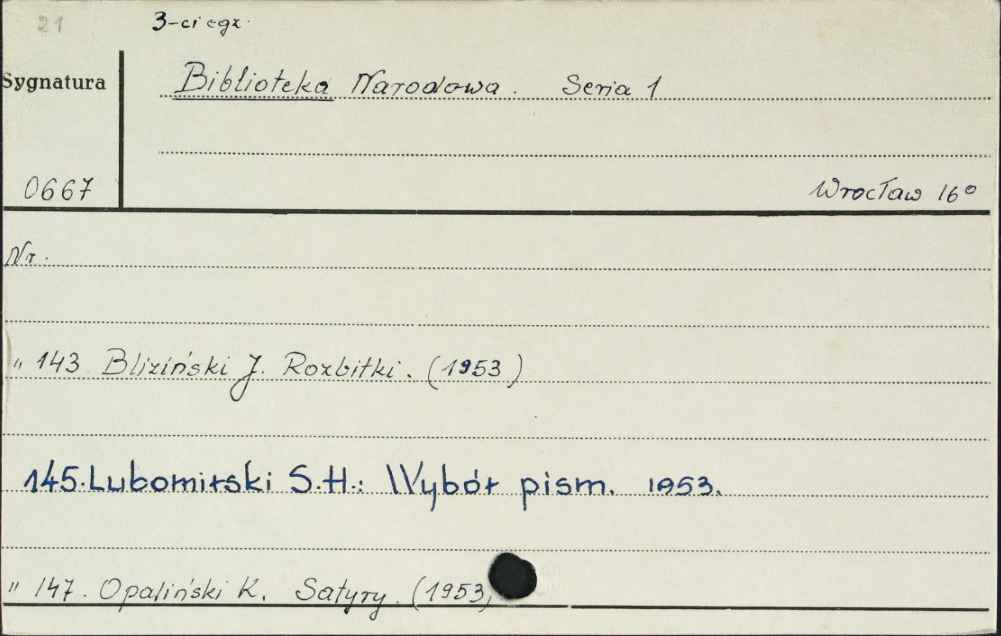 21
3-ci egz.
Sygnatura
Biblioteka Narodowa. Seria 1
0667
Wrocław 16°
Nr.
" 143 Bliziński J. Rozbitki. (1953)
145. Lubomirski S.H.: Wybór pism. 1953.
" 147. Opaliński K. Satyry. (1953)